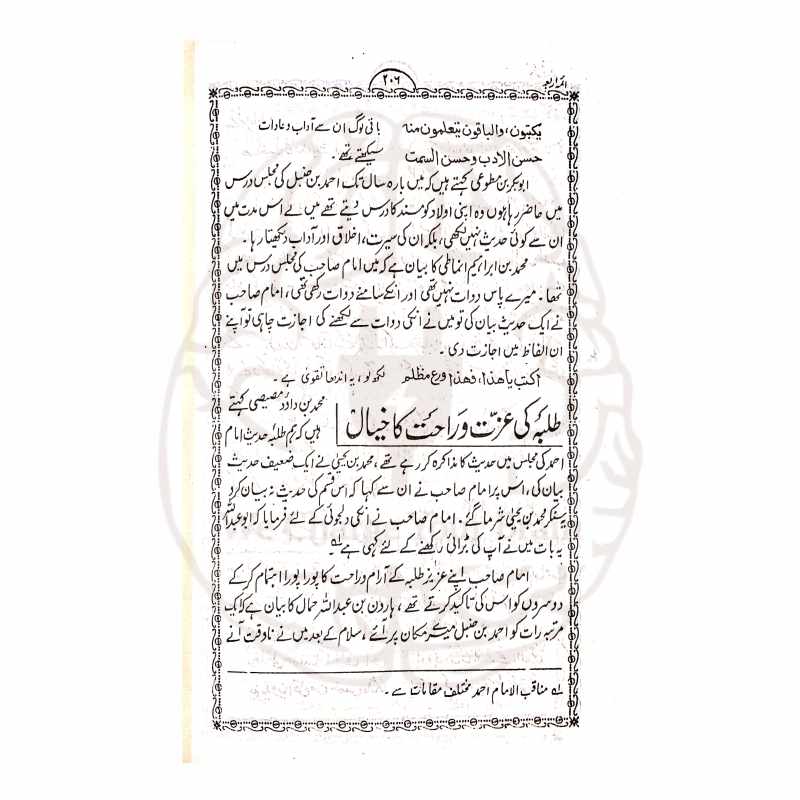 ائمہ اربعہ
۲۰۶
یکتبون، والباقون یتعلمون منہ باقی لوگ ان سے آداب و عادات
حسن الادب وحسن السمت سیکھتے تھے۔
ابوبکر بن مطوعی کہتے ہیں کہ میں بارہ سال تک احمد بن حنبل کی مجلس درس
میں حاضر رہا ہوں وہ اپنی اولاد کو مسند کا درس دیتے تھے میں نے اس مدت میں
ان سے کوئی حدیث نہیں لکھی، بلکہ ان کی سیرت، اخلاق اور آداب دیکھتا رہا۔
محمد بن ابراہیم انماطی کا بیان ہے کہ میں امام صاحب کی مجلس درس میں
تھا۔ میرے پاس دوات نہیں تھی اور انکے سامنے دوات رکھی تھی، امام صاحب
نے ایک حدیث بیان کی تو میں نے انکی دوات سے لکھنے کی اجازت چاہی تو آپنے
ان الفاظ میں اجازت دی۔
اکتب یا ھذا، فھذا ورع مظلم لکھ لو، یہ اندھا تقویٰ ہے۔
طلبہ کی عزت و راحت کا خیال
محمد بن داؤد مصیصی کہتے
ہیں کہ ہم طلبۂ حدیث امام
احمد کی مجلس میں حدیث کا مذاکرہ کر رہے تھے، محمد بن یحییٰ نے ایک ضعیف حدیث
بیان کی، اس پر امام صاحب نے ان سے کہا کہ اس قسم کی حدیث نہ بیان کرو
یہ سنکر محمد بن یحییٰ شرما گئے۔ امام صاحب نے انکی دلجوئی کے لئے فرمایا کہ ابو عبداللہ
یہ بات میں نے آپ کی بڑائی رکھنے کے لئے کہی ہے لہ
امام صاحب اپنے عزیز طلبہ کے آرام و راحت کا پورا پورا اہتمام کر کے
دوسروں کو اس کی تاکید کرتے تھے، ہارون بن عبداللہ حمال کا بیان ہے کہ ایک
مرتبہ رات کو احمد بن حنبل میرے مکان پر آئے، سلام کے بعد میں نے نا وقت آنے
لہ مناقب الامام احمد مختلف مقامات سے۔